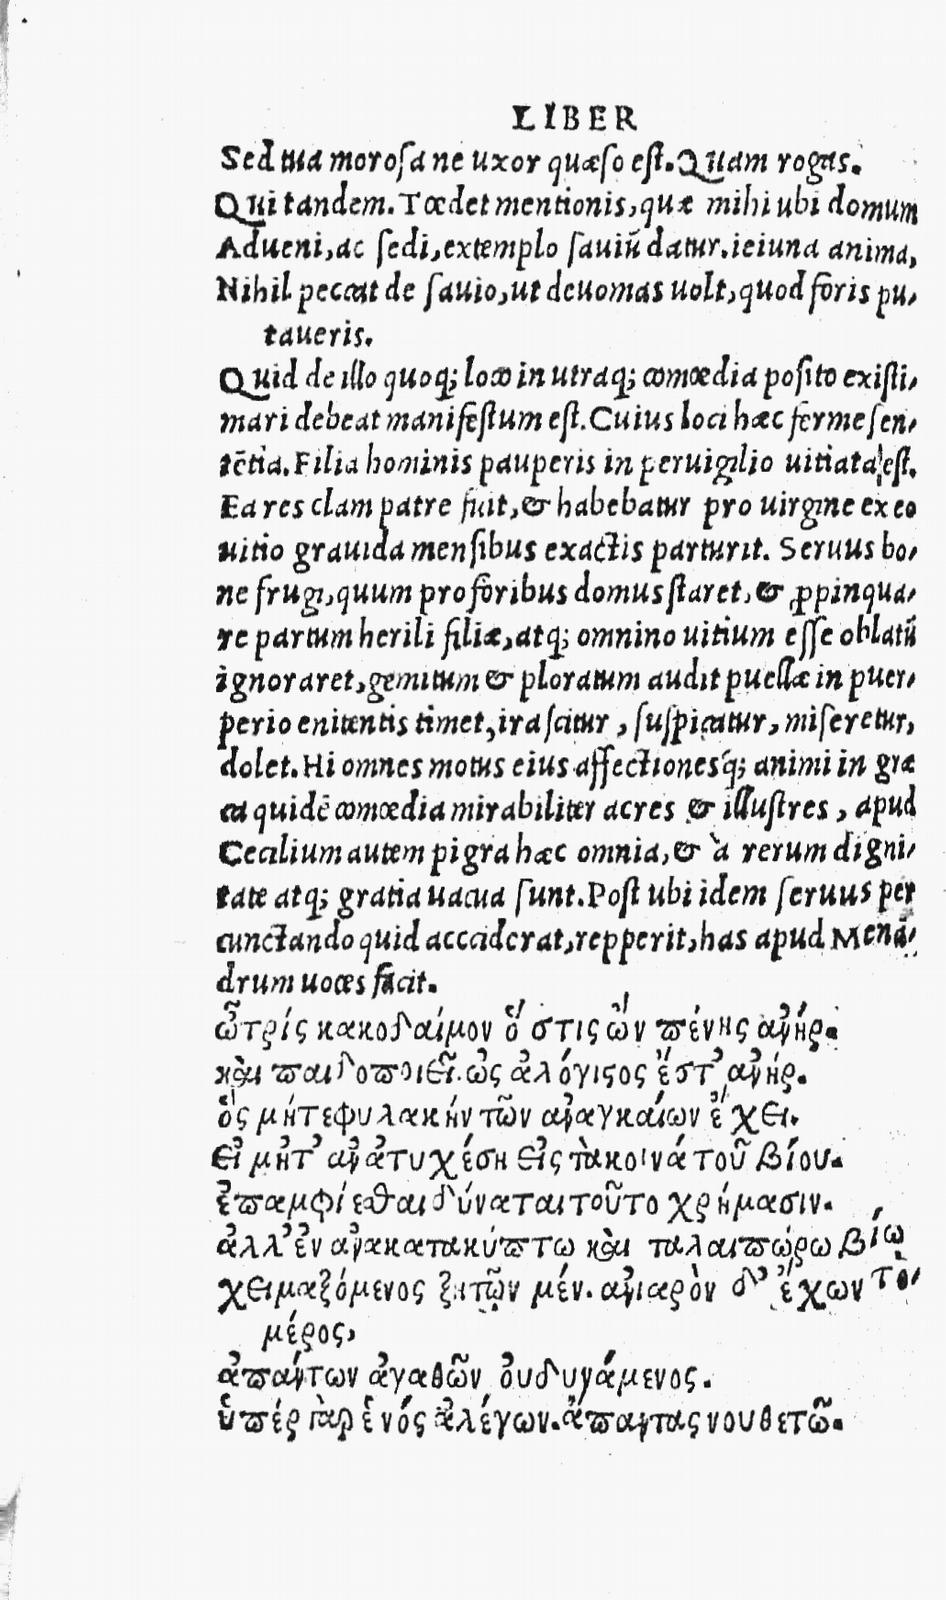 LIBER
Sed tua morosa ne uxor quæso est. Quam rogas.
Qui tandem. Tœdet mentionis, quæ mihi ubi domum
Adueni, ac sedi, extemplo sauiũ datur. ieiuna anima,
Nihil peccat de sauio, ut deuomas uolt, quod foris pu-
taueris.
Quid de illo quoq; loco in utraq; comœdia posito existi-
mari debeat manifestum est. Cuius loci hæc ferme sen-
tẽtia. Filia hominis pauperis in peruigilio uitiata est.
Ea res clam patre fuit, & habebatur pro uirgine ex eo
uitio grauida mensibus exactis parturit. Seruus bo-
ne frugi, quum pro foribus domus staret, & ꝓpinqua-
re partum herili filiæ, atq; omnino uitium esse oblatũ
ignoraret, gemitum & ploratum audit puellæ in puer-
perio enitentis timet, irascitur, suspicatur, miseretur,
dolet. Hi omnes motus eius affectionesq́; animi in græ
ca quidẽ comœdia mirabiliter acres & illustres, apud
Cecilium autem pigra hæc omnia, & à rerum digni-
tate atq; gratia uacua sunt. Post ubi idem seruus per
cunctando quid acciderat, repperit, has apud Menã-
drum uoces facit.
ὦτρίς κακοδαίμον ὅ στις ὢν πένης ἀνήρ.
καὶ παιδοποιεῖ. ὡς ἀλόγιϛος ἐστ᾽ ἀνήρ.
ὃς μήτεφυλακήν τῶν ἀναγκαίων ἔ χει.
εἰ μὴτ᾽ ἂν ἀτυχέση εἰς τὰκοινά τοῦ βίου.
ἐπαμφιέθαι δύναται τοῦτο χρήμασιν.
ἀλλ᾽ ἐν ἀνακατακύπτω καὶ ταλαιπώρω βίω
χειμαξόμενος ξητῶν μέν. ἀνιαρὸν δ᾽ ἔχων τὸ-
μέρος,
ἁπάντων ἀγαθῶν ὀυδυνάμενος.
ὑπέρ γὰρ ἑνός ἀλέγων. ἅπαντας νουθετῶ.